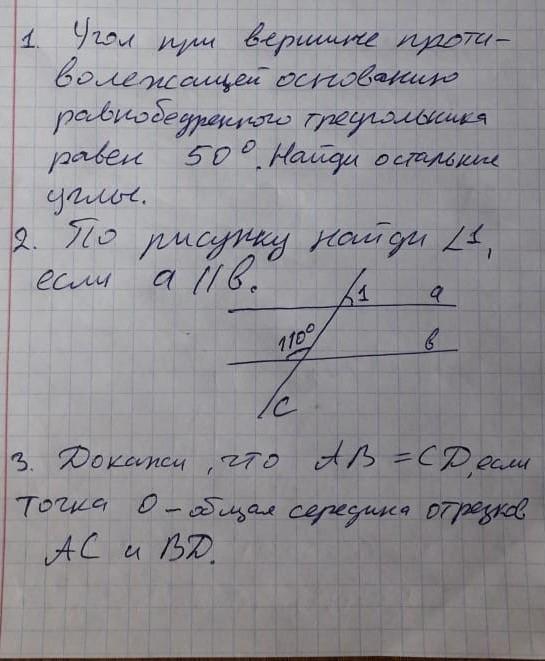 1. Угол при вершине проти-
волежащей основанию
равнобедренного треугольника
равен 50°. Найди остальные
углы.
2. По рисунку найди ∠1,
если a || b.
1 a
110° b
C
3. Докажи, что AB = CD, если
точка O – общая середина отрезков
AC и BD.